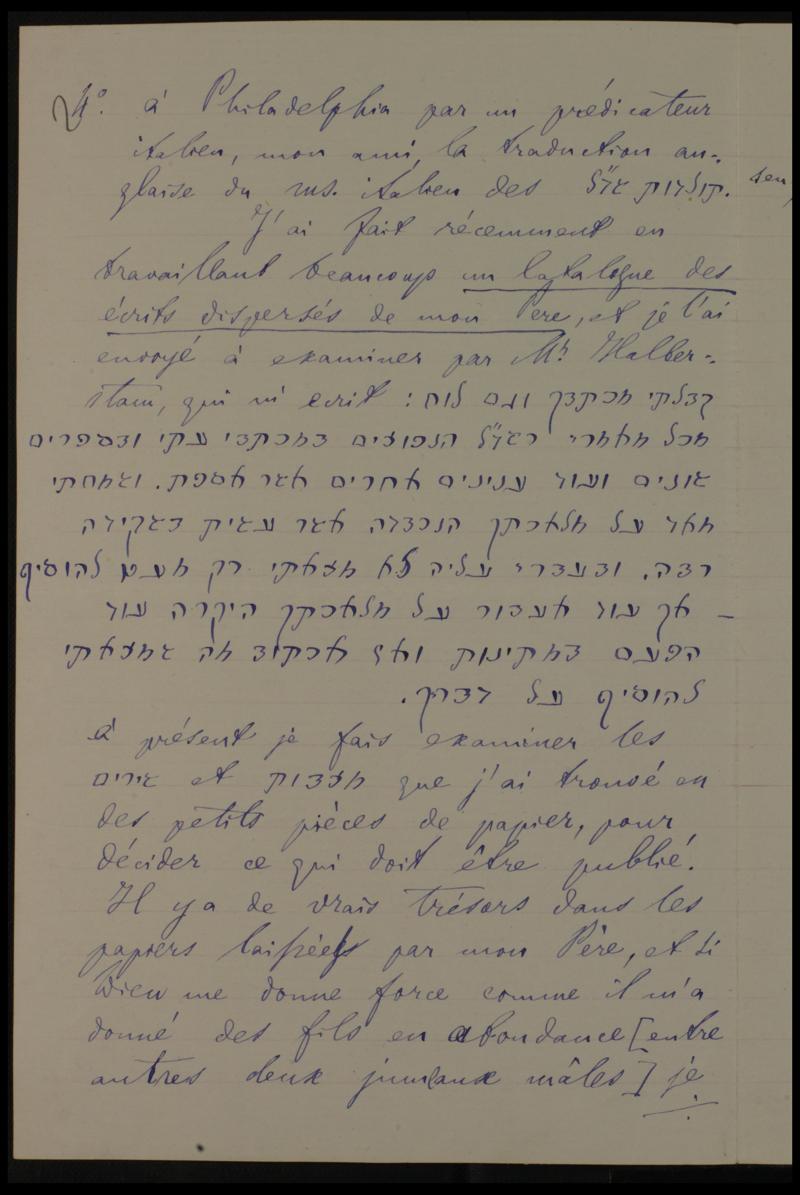 4º. à Philadelphia par un prédicateur
italien, mon ami, la traduction an-
glaise du ms. italien des תולדות שד״ל.
J'ai fait récemment en
travaillant beaucoup un Catalogue des
écrits dispersés de mon Père, et je l'ai
envoyé à examiner par Mr. Halber-
stam, qui m'ecrit : קבלתי מכתבך וגם לוח
מכל מאמרי רשד״ל הנפוצים במכתבי עתי ובספרים
שונים ועוד ענינים אחרים אשר אספת. ושמחתי
מאד על מלאכתך הנכבדה אשר עשית בשקידה
רבה. ובעברי עליה לא מצאתי רק מעט להוסיף
– אך עוד אעבור על מלאכתך היקרה עוד
הפעם במתינות ואז אכתוב מה שמצאתי
להוסיף על דברך.
à présent je fais examiner les
שירים et מצבות que j'ai trouvé en
des petits pièces de papier, pour
décider ce qui doit être publié.
Il y a de vrais trésors dans les
papiers laissés par mon Père, et si
Dieu me donne force comme il m'a
donné des fils en abondance [entre
autres deux jumeaux mâles] je